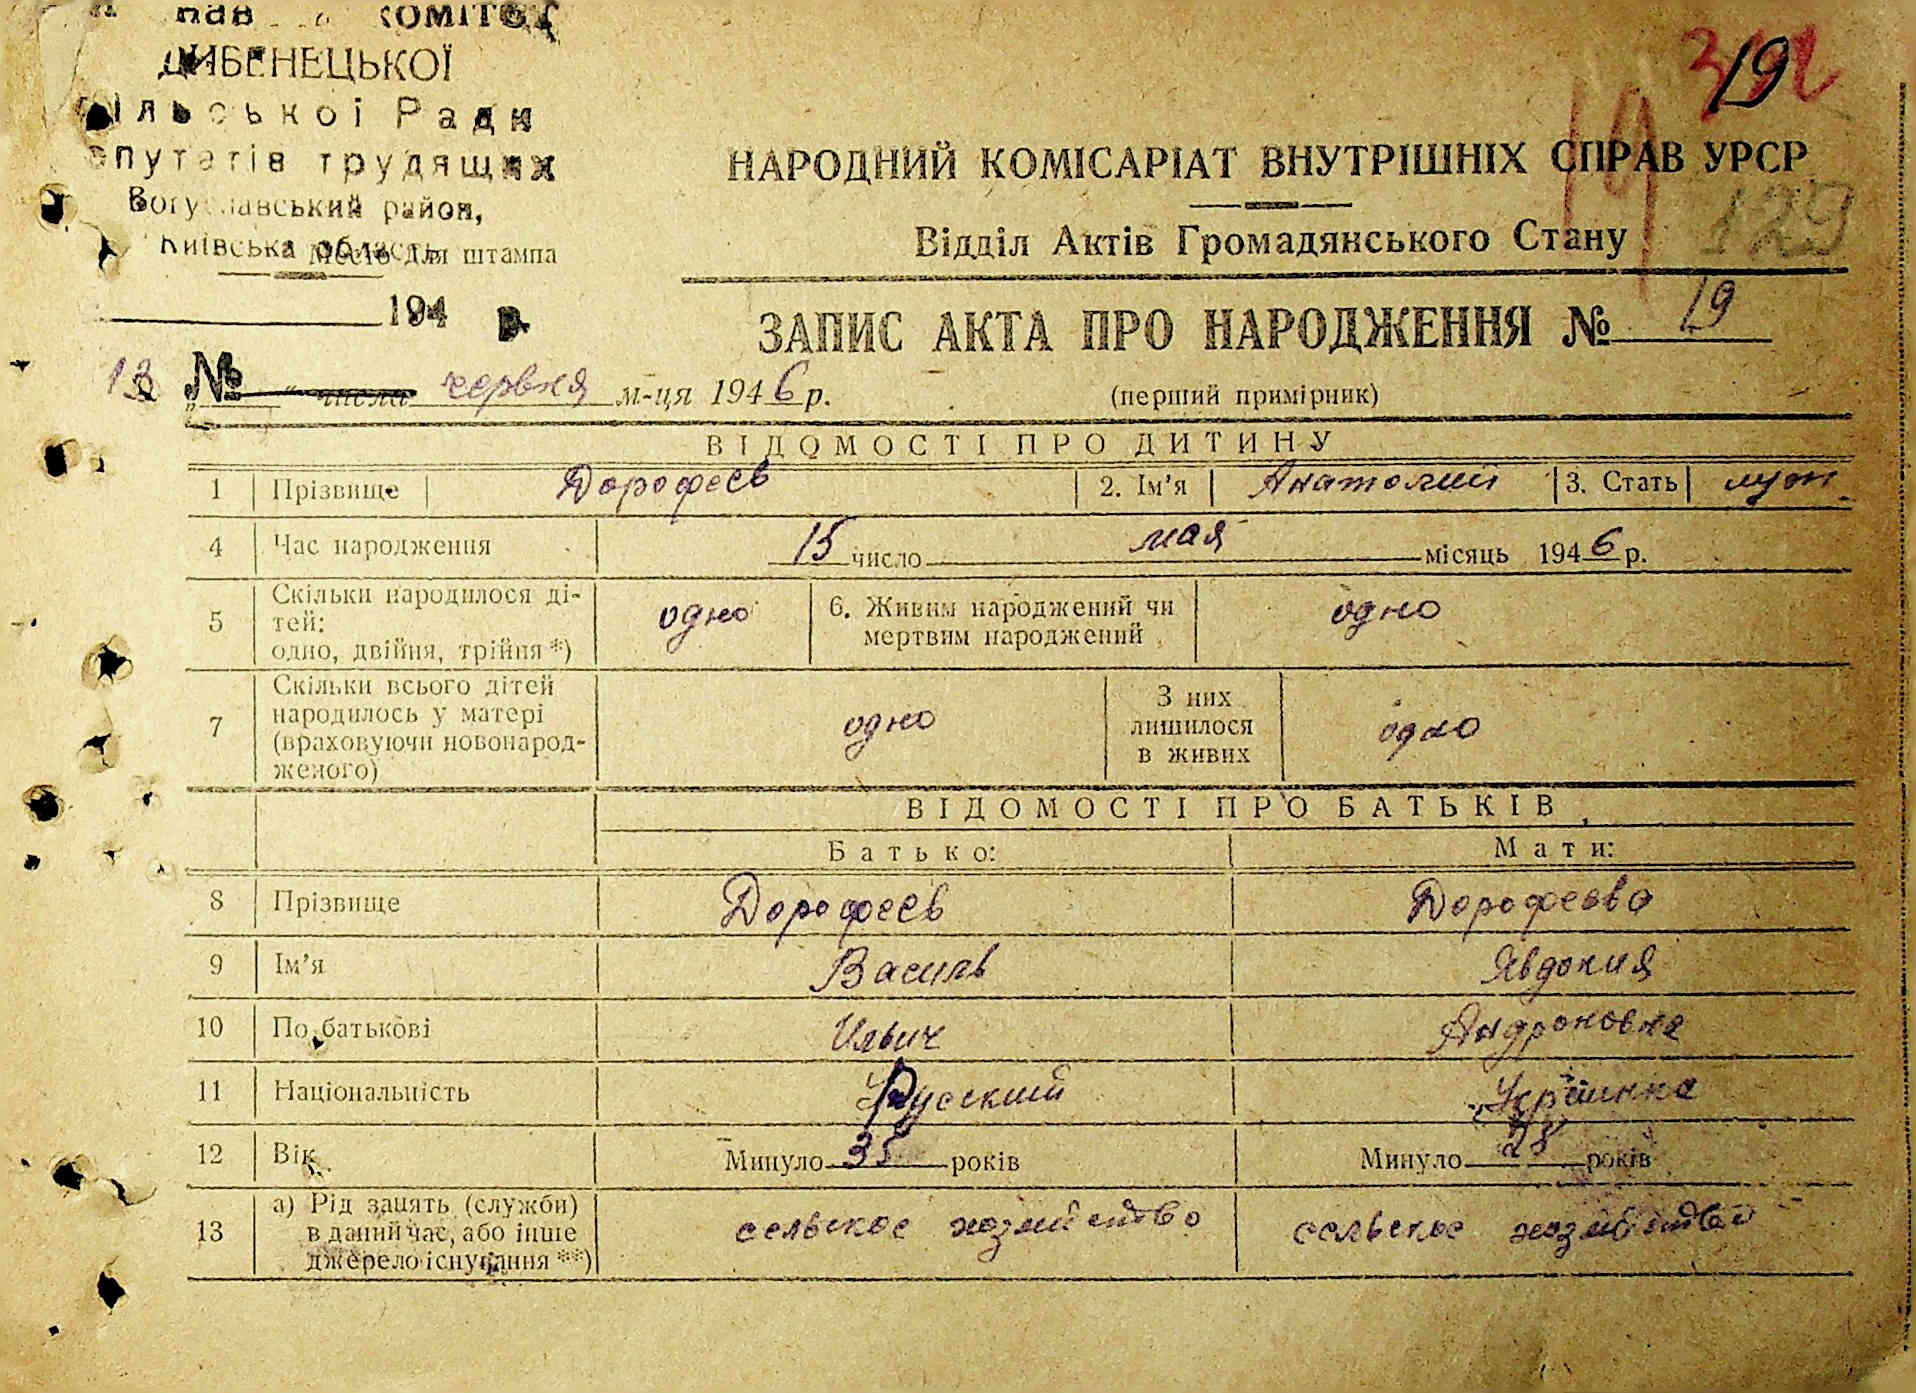 комітет
ДИБЕНЕЦЬКОЇ
ільської Ради
епутатів трудящих
Богуславський район,
Київська область
Місце для штампа
19
129
НАРОДНИЙ КОМІСАРІАТ ВНУТРІШНІХ СПРАВ УРСР
Відділ Актів Громадянського Стану
194 р.
ЗАПИС АКТА ПРО НАРОДЖЕННЯ № 19
13 № числа червня м-ця 1946 р.
(перший примірник)
ВІДОМОСТІ ПРО ДИТИНУ
1 Прізвище Дорофеев 2. Ім’я Анатолий 3. Стать муж.
4 Час народження 15 число мая місяць 1946 р.
5 Скільки народилося дітей: одно, двійня, трійня *) одно 6. Живим народжений чи мертвим народжений одно
7 Скільки всього дітей народилось у матері (враховуючи новонародженого) одно З них лишилося в живих одно
ВІДОМОСТІ ПРО БАТЬКІВ
Батько: Мати:
8 Прізвище Дорофеев Дорофеева
9 Ім’я Василь Явдокия
10 По батькові Ильич Андроновна
11 Національність Русский Украинка
12 Вік Минуло 35 років Минуло 28 років
13 а) Рід занять (служби) в даний час, або інше джерело існування **) сельское хозяйство сельское хозяйство